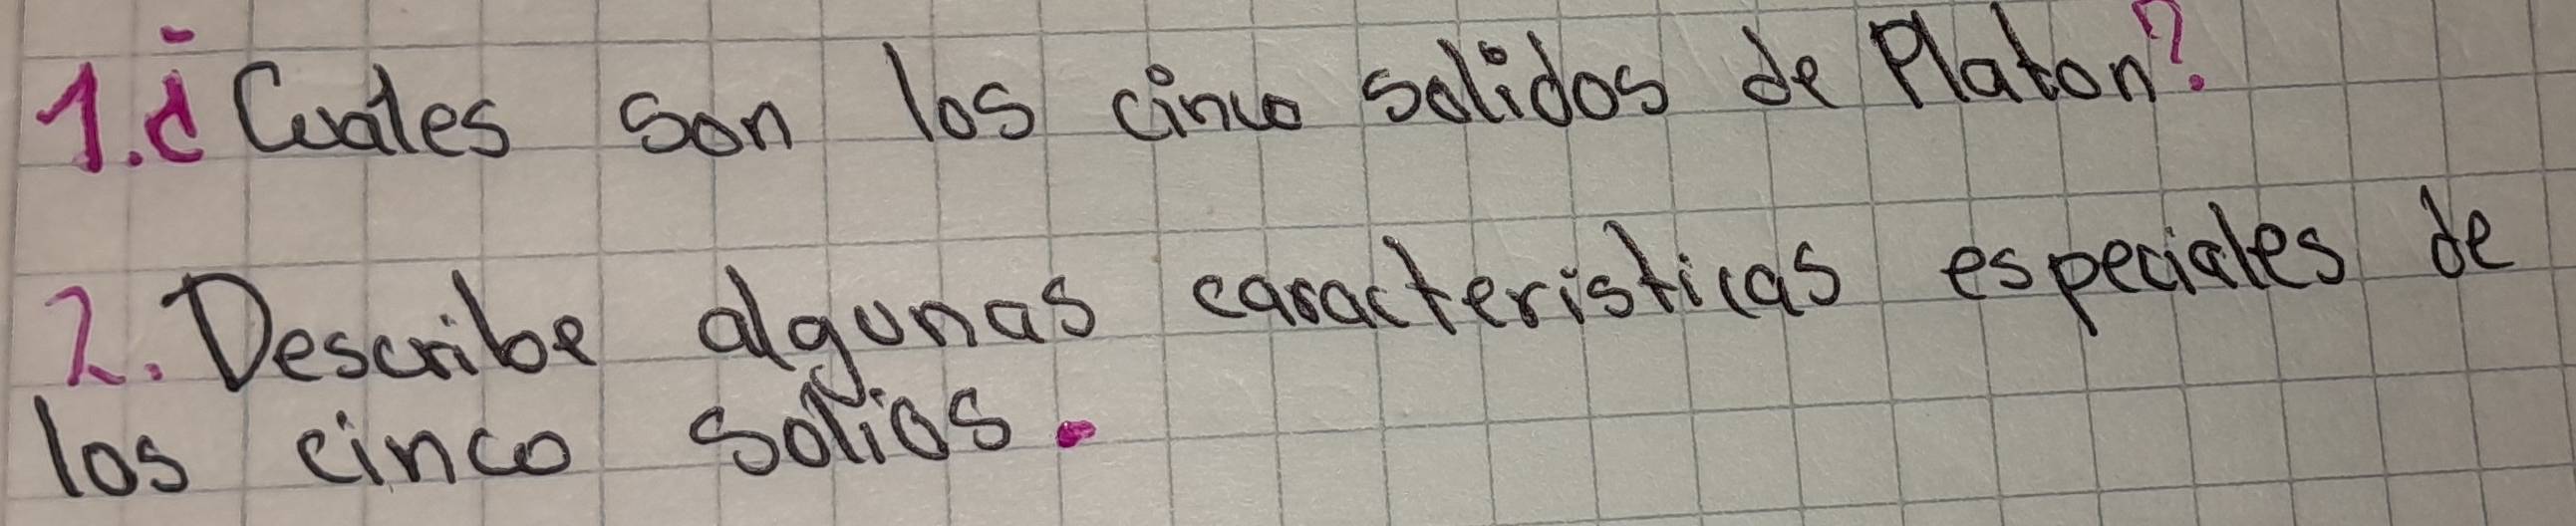 1. ¿Cuales son los cinco solidos de Platon?
2. Describe algunas caracteristicas especiales de
los cinco solios.